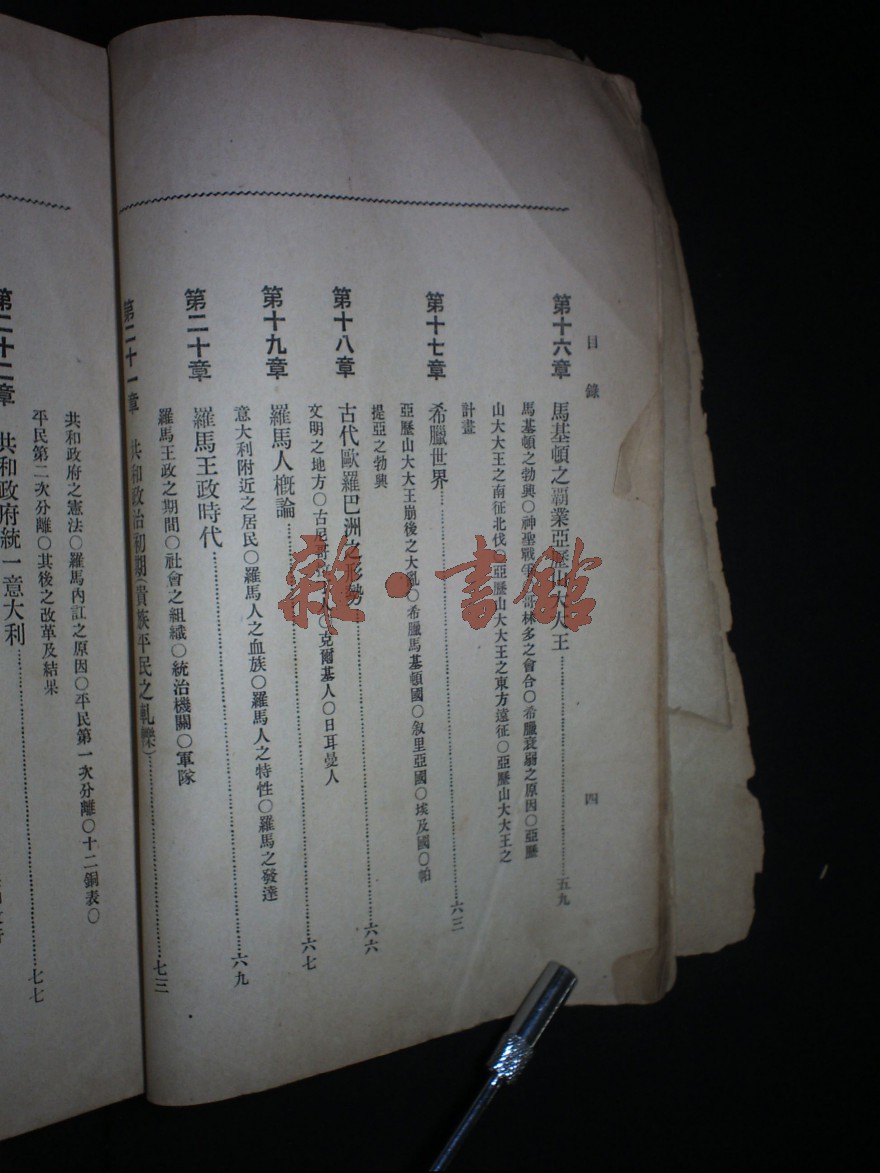 目錄 四
第十六章 馬基頓之霸業亞歷山大大王……五九
馬基頓之勃興○神聖戰爭○哥林多之會合○希臘衰弱之原因○亞歷
山大大王之南征北伐○亞歷山大大王之東方遠征○亞歷山大大王之
計畫
第十七章 希臘世界……六三
亞歷山大大王崩後之大亂○希臘馬基頓國○敘里亞國○埃及國○帕
提亞之勃興
第十八章 古代歐羅巴洲之形勢……六六
文明之地方○古尼哥 人○克爾基人○日耳曼人
第十九章 羅馬人概論……六七
意大利附近之居民○羅馬人之血族○羅馬人之特性○羅馬之發達
第二十章 羅馬王政時代……六九
羅馬王政之期間○社會之組織○統治機關○軍隊
第二十一章 共和政治初期(貴族平民之軋轢)……七三
共和政府之憲法○羅馬內訌之原因○平民第一次分離○十二銅表○
平民第二次分離○其後之改革及結果
第二十二章 共和政府統一意大利……七七
雜·書館